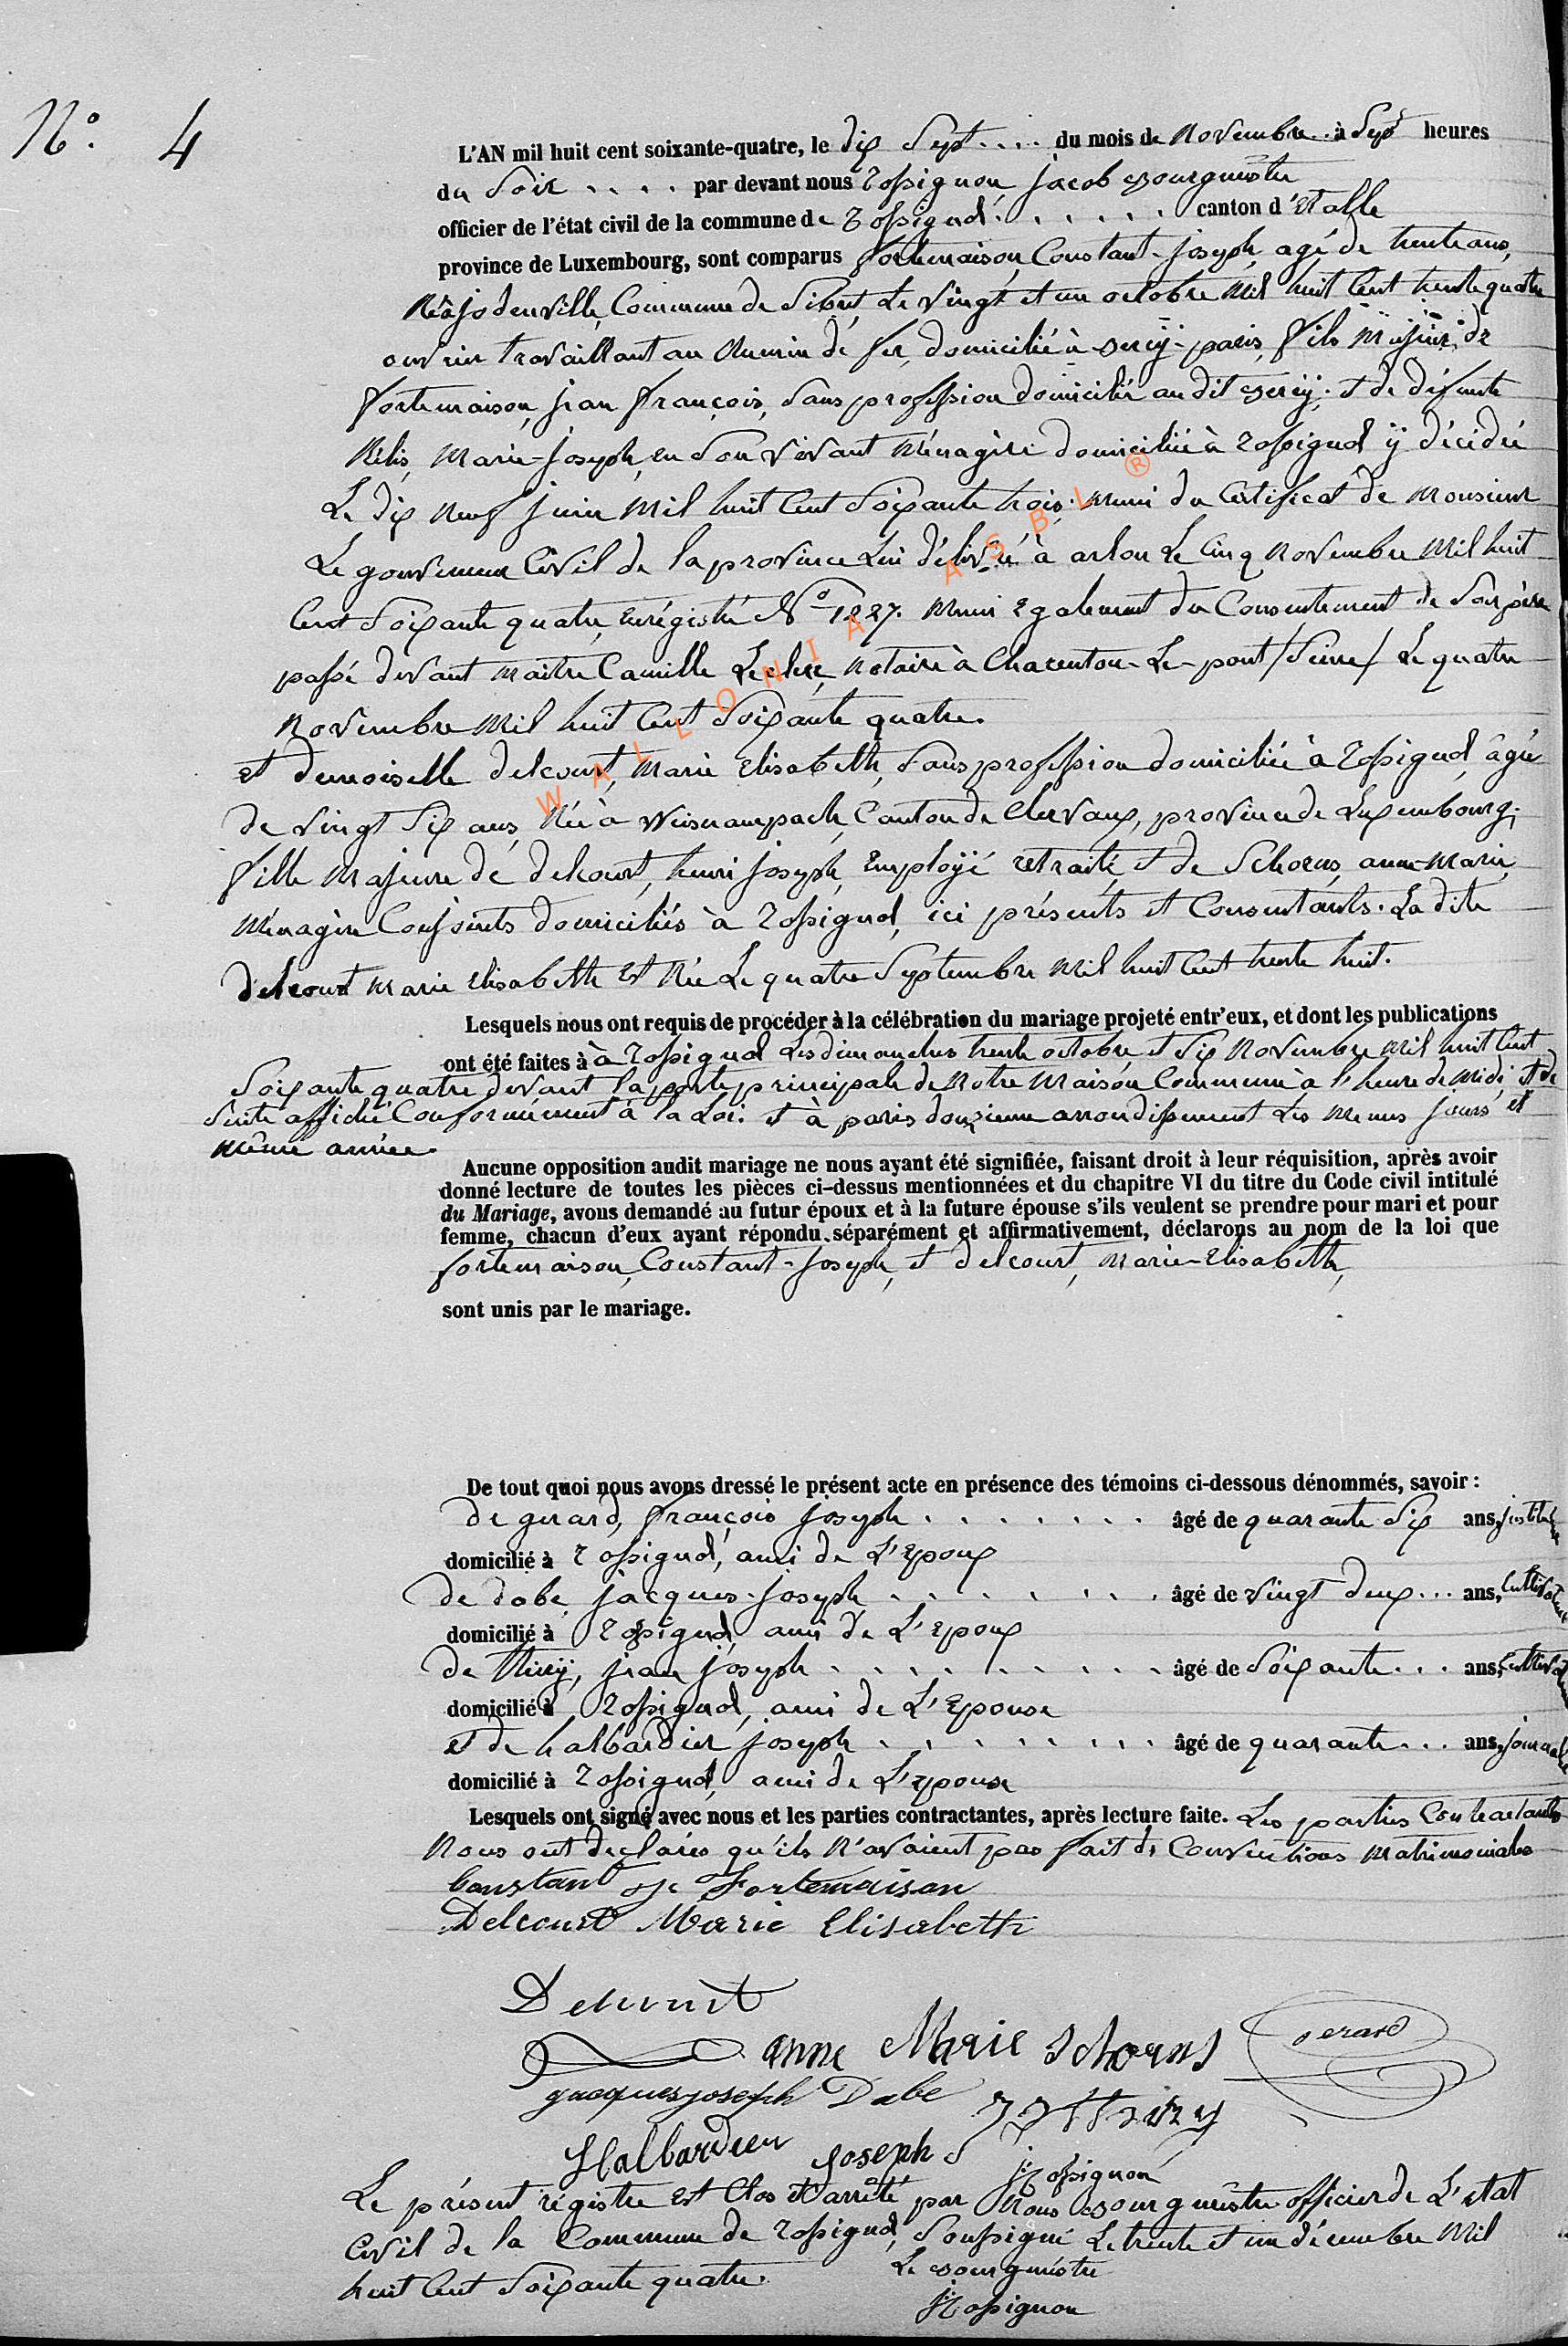 N° 4
L'AN mil huit cent soixante-quatre, le dix Sept .... du mois de Novembre .. à Sept heures
du Soir .... par devant nous Rossignon jacob Bourgmestre
officier de l'état civil de la commune de Rossignol ...... canton d'Etalle
province de Luxembourg, sont comparus fortemaison Constant-joseph, agé de trente ans,
Né à jodenville, Commune de Sibret, Le Vingt et un octobre Mil huit Cent trente quatre
ouvrier travaillant au chemin de fer, domicilié à Bercÿ-paris, fils Majeur de
fortemaison, jean françois, Sans profession domicilié au dit Bercÿ; et de défunte
Marie-joseph, en Son vivant Ménagère domiciliée à Rossignol ÿ décédée
Le dix Neuf juin Mil huit Cent Soixante trois. Muni du Certificat de Monsieur
Le gouverneur Civil de la province Lui délivré à arlon Le Cinq Novembre Mil huit
Cent Soixante quatre, enrégistré N° 1227. Muni Egalement du Consentement de Son père
passé devant Maitre Camille Leclerc, Notaire à Charenton-Le-pont /Seine/ Le quatre
Novembre Mil huit Cent Soixante quatre.
et demoiselle delcourt, Marie Elisabeth, Sans profession domiciliée à Rossignol, âgée
de Vingt Six ans, Née à Weiswampach, Canton de Clervaux, province de Luxembourg,
fille Majeure de delcourt, henri joseph, Employé retraité, et de Schorns, anne-Marie,
Ménagère Conjoints domiciliés à Rossignol, ici présents et Consentants. La dite
delcourt Marie Elisabeth Est Née Le quatre Septembre Mil huit Cent trente huit.
Lesquels nous ont requis de procéder à la célébration du mariage projeté entr'eux, et dont les publications
ont été faites à à Rossignol Les dimanches trente octobre et Six Novembre Mil huit Cent
Soixante quatre devant la porte principale de Notre Maison Commune à l'heure de Midi et de
Suite affiché Conformément à la Loi. et à paris douzieme arrondissement Les Memes jours et
même année.
Aucune opposition audit mariage ne nous ayant été signifiée, faisant droit à leur réquisition, après avoir
donné lecture de toutes les pièces ci-dessus mentionnées et du chapitre VI du titre du Code civil intitulé
du Mariage, avous demandé au futur époux et à la future épouse s'ils veulent se prendre pour mari et pour
femme, chacun d'eux ayant répondu séparément et affirmativement, déclarons au nom de la loi que
fortemaison, Constant-joseph, et delcourt, Marie-Elisabeth,
sont unis par le mariage.
De tout quoi nous avons dressé le présent acte en présence des témoins ci-dessous dénommés, savoir :
de gerard, françois joseph ....... âgé de quarante Six ans,
domicilié à Rossignol, ami de L'Epoux
de dabe jacques-joseph ....... âgé de vingt deux ... ans, Cultivateur
domicilié à Rossignol ami de L'Epoux
de thiry, jean joseph ......... âgé de Soixante ... ans, Cultivateur
domicilié à Rossignol, ami de L'Epouse
et de halbardier joseph ........ âgé de quarante ... ans, journalier
domicilié à Rossignol, ami de L'Epouse
Lesquels ont signé avec nous et les parties contractantes, après lecture faite. Les parties Contractantes
Nous ont declarés qu'ils N'avaient pas fait de Conventions Matrimoniales
Constant Je Fortemaison
Delcourt Marie Elisabeth
Delcourt
anne Marie Schorns gerard
jacques joseph Dabe J J thiry
Halbardier joseph
J Rossignon
Le présent régistre est Clos et arrêté par Nous Bourgmestre officier de L'état
Civil de la Commune de Rossignol, Soussigné Le trente et un décembre Mil
huit Cent Soixante quatre.
Le Bourgmestre
J Rossignon
WALLONIA ASBL ®